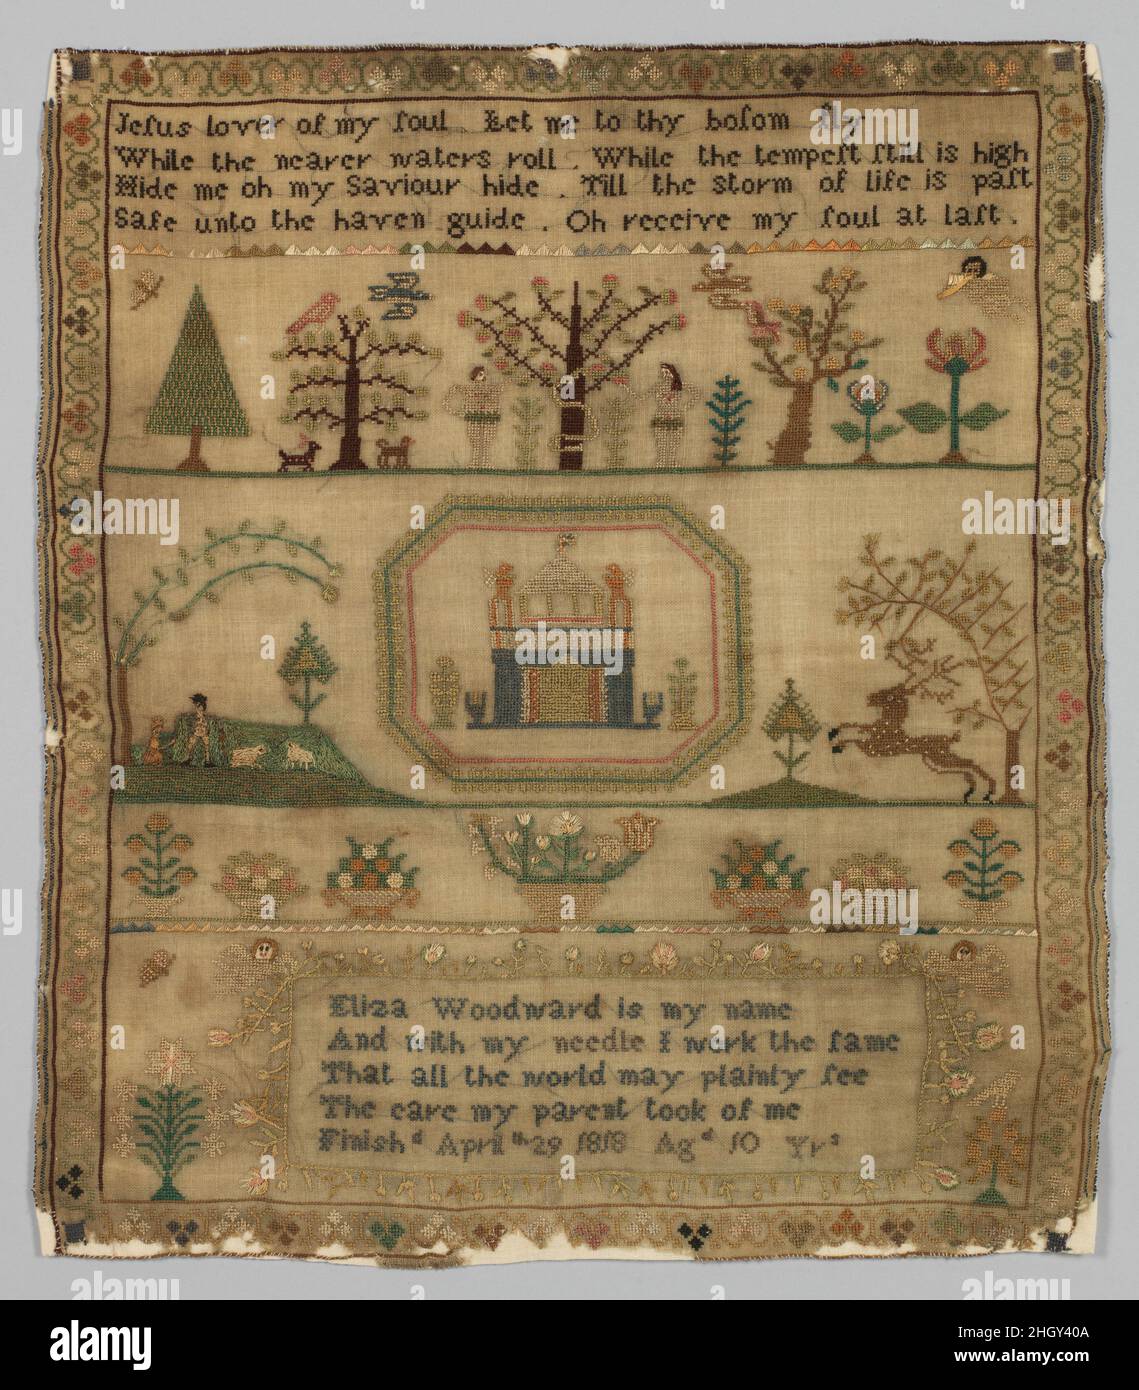 Jeſus lover of my ſoul Let me to thy boſom fly
While the nearer waters roll . While the tempeſt ſtill is high
Hide me oh my Saviour hide . Till the storm of life is paſt
Safe unto the haven guide . Oh receive my ſoul at laſt .
Eliza Woodward is my name
And with my needle I work the ſame
That all the world may plainly ſee
The care my parent took of me
Finish d April th 29 1818 Ag d 10 Yrs
alamy
Image ID: 2HGY40A
www.alamy.com